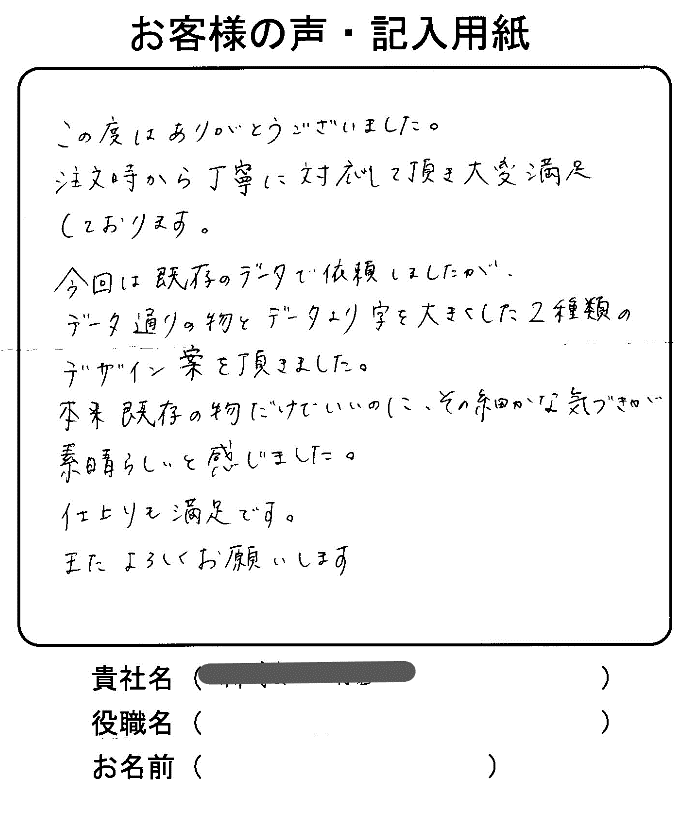 お客様の声・記入用紙
この度はありがとうございました。
注文時から丁寧に対応して頂き大変満足
しております。
今回は既存のデータで依頼しましたが、
データ通りの物とデータより字を大きくした2種類の
デザイン案を頂きました。
本来既存の物だけでいいのに、その細かな気づきが
素晴らしいと感じました。
仕上りも満足です。
またよろしくお願いします
貴社名（　　　）
役職名（　　　）
お名前（　　　）